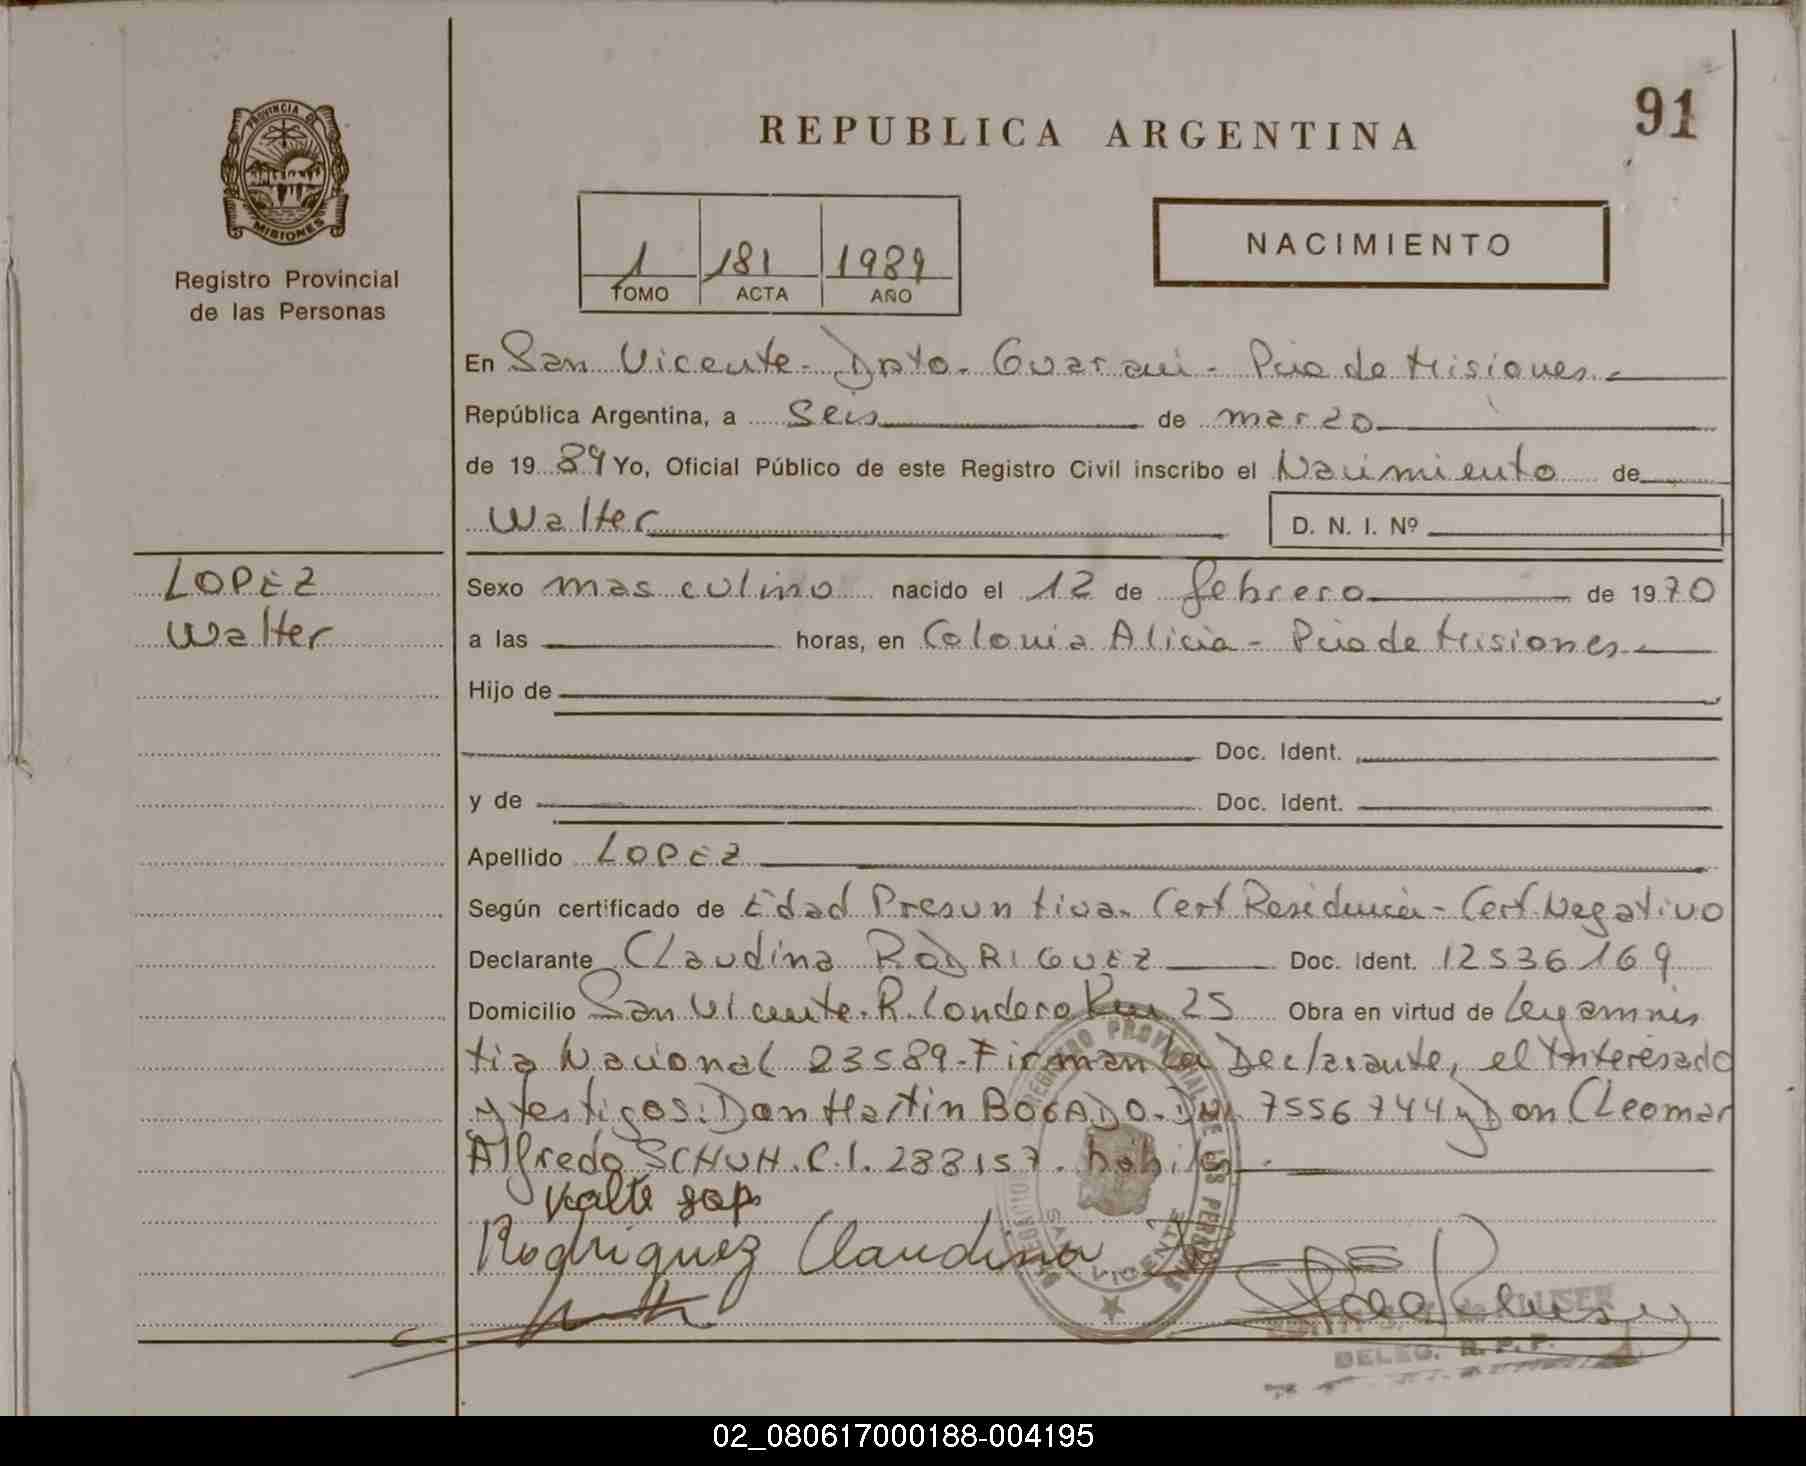 91
PROVINCIA DE
MISIONES
Registro Provincial
de las Personas
REPUBLICA ARGENTINA
1 181 1989
TOMO ACTA AÑO
NACIMIENTO
En San Vicente - Dpto. Guarani - Pcia de Misiones
República Argentina, a seis de marzo
de 1989 Yo, Oficial Público de este Registro Civil inscribo el Nacimiento de
Walter D. N. I. Nº
LOPEZ
Walter
Sexo masculino nacido el 12 de febrero de 1970
a las horas, en Colonia Alicia - Pcia de Misiones
Hijo de
Doc. Ident.
y de Doc. Ident.
Apellido LOPEZ
Según certificado de Edad Presuntiva. Cert Residencia - Cert. Negativo
Declarante Claudina RODRIGUEZ Doc. Ident. 12536169
Domicilio San Vicente. R. Londero Km 25 Obra en virtud de Ley amnis
tia Nacional 23589 - Firman la Declarante, el Interesado
y testigos: Don Martin BOGADO. DNI. 7556744 y Don Cleomar
Alfredo SCHUH. C.I. 288157. habiles
Rodriguez Claudina
REGISTRO PROVINCIAL DE LAS PERSONAS
SAN VICENTE
KLUSER
DELEG. R. P. P.
02_080617000188-004195